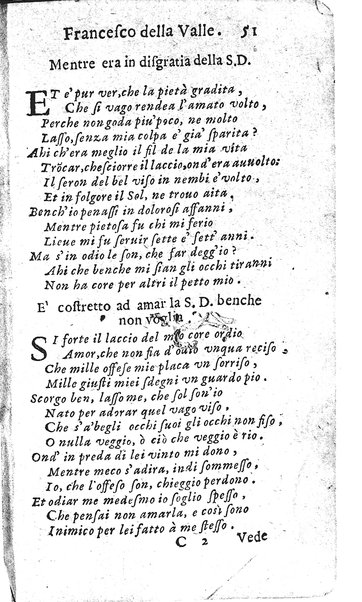 Francesco della Valle. 51
Mentre era in disgratia della S.D.
ET è pur ver, che la pietà gradita,
Che sì vago rendea l'amato volto,
Perche non goda piu poco, ne molto
Lasso, senza mia colpa è già sparita?
Ahi ch'era meglio il fil de la mia vita
Trõcar, che sciorre il laccio, ond'era auuolto:
Il seren del bel viso in nembi è volto,
Et in folgore il Sol, ne trouo aita.
Bench'io penassi in dolorosi affanni,
Mentre pietosa fu chi mi ferio
Lieue mi fu seruir sette e sett'anni.
Ma s'in odio le son, che far deggio?
Ahi che benche mi sian gli occhi tiranni
Non ha core per altri il petto mio.
E' costretto ad amar la S.D. benche
non voglia.
SI forte il laccio del mio core ordio
Amor, che non fia d'odio vnqua reciso,
Che mille offese mie placa vn sorriso,
Mille giusti miei sdegni vn guardo pio.
Scorgo ben, lasso me, che sol son'io
Nato per adorar quel vago viso,
Che s'a begli occhi suoi gli occhi non fiso,
O nulla veggio, ò ciò che veggio è rio.
Ond'in preda di lei vinto mi dono,
Mentre meco s'adira, indi sommesso,
Io, che l'offeso son, chieggio perdono.
Et odiar me medesmo io soglio spesso,
Che pensai non amarla, e così sono
Inimico per lei fatto à me stesso.
C 2 Vede